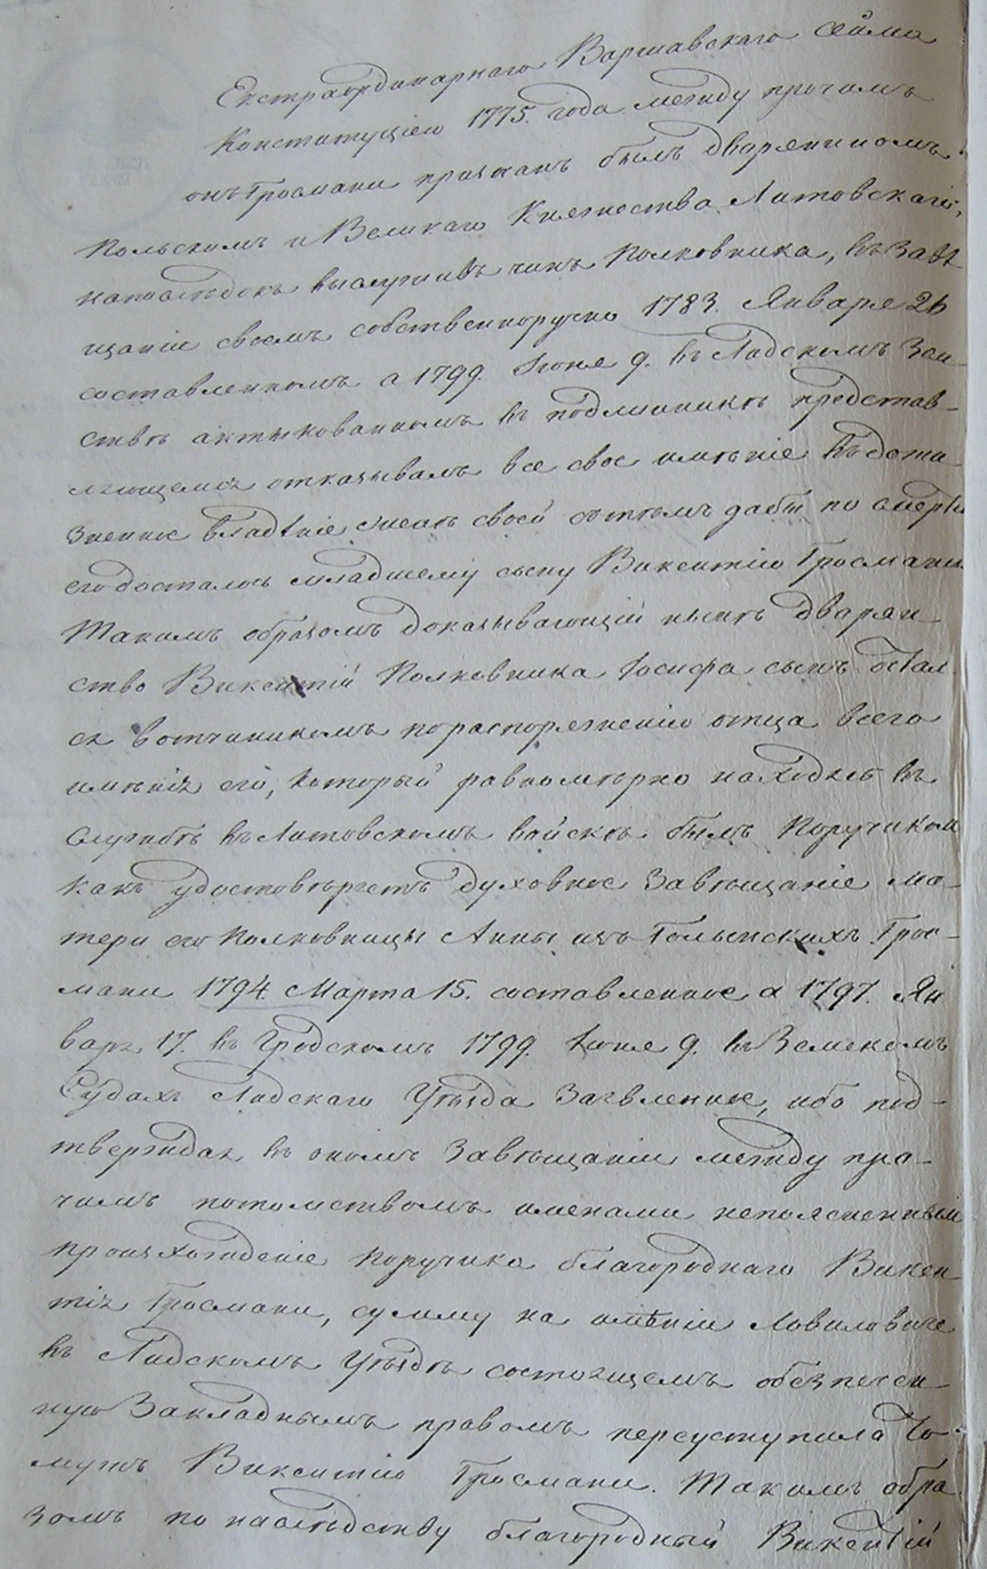 Екстраординарнаго Варшавскаго Сейма
Конституціею 1775. года между прочимъ
онъ Гросмани признанъ былъ Дворяниномъ
Польскимъ и Великаго Княжества Литовскаго,
напослѣдокъ выслуживъ чинъ Полковника, въ Завѣ
щаніи своемъ собственноручно 1783. Января 26
составленномъ а 1799. Іюня 9. въ Лидскомъ Зем-
ствѣ актыкованномъ въ подлинникѣ представ-
ляющемся отказывалъ все свое имѣніе въ дожи
зненное владѣніе женѣ своей съ тѣмъ дабы по смерти
его досталось младшему сыну Викентію Гросмани
Такимъ образомъ доказывающій нынѣ дворян
ство Викентій Полковника Іосифа сынъ остал
ся вотчинникомъ по распоряженію отца всего
имѣнія его, который равномѣрно находясь въ
службѣ въ Литовскомъ войскѣ былъ Поручикомъ
какъ удостовѣряетъ духовное Завѣщаніе ма-
тери его Полковницы Анны изъ Голынскихъ Грос-
мани 1794. Марта 15. составленное а 1797. Ян
варя 17. въ Гродскомъ 1799. Іюня 9. въ Земскомъ
Судахъ Лидскаго Уѣзда заявленное, ибо под-
тверждая въ ономъ Завѣщаніи между про-
чимъ потомствомъ именами непоясненнымъ
происхожденіе Поручика благороднаго Викен
тія Гросмани, сумму на имѣніи
въ Лидскомъ Уѣздѣ состоящемъ обезпечен
ную Закладнымъ правомъ переуступила то-
мужъ Викентію Гросмани. Такимъ обра
зомъ по наслѣдству благородный Викентій